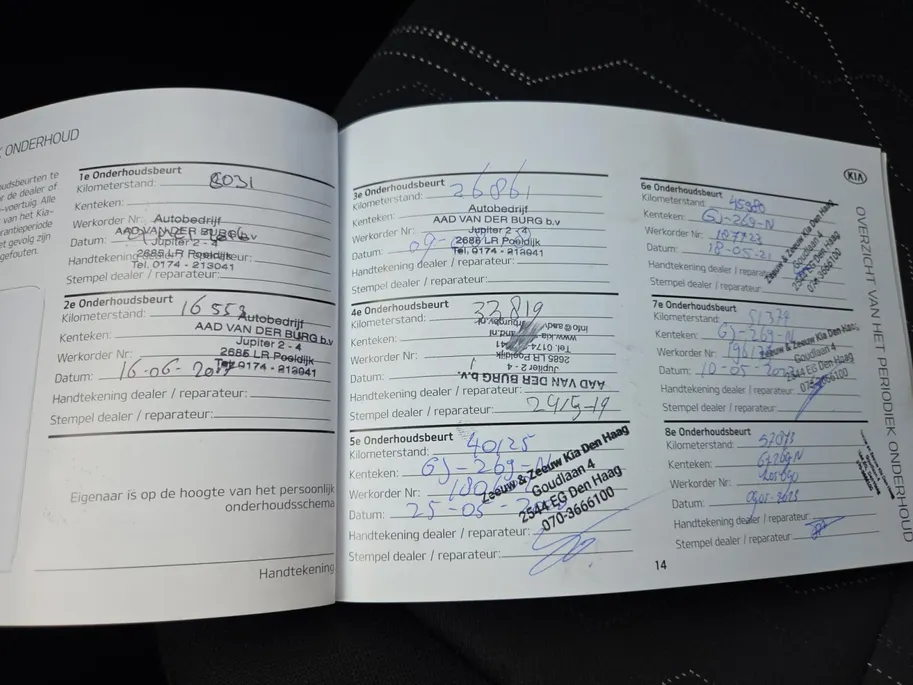 ONDERHOUD
udsbeurten te
r de dealer of
-voertuig. Alle
van het Kia-
rantieperiode
t gevolg zijn
gefouten.
1e Onderhoudsbeurt
Kilometerstand: 8031
Kenteken:
Werkorder Nr.
Autobedrijf
AAD VAN DER BURG b.v
Datum:
Jupiter 2 - 4
2685 LR Poeldijk
Handtekening dealer / reparateur:
Tel. 0174 - 213041
Stempel dealer / reparateur:
2e Onderhoudsbeurt
Kilometerstand: 16553
Autobedrijf
Kenteken:
AAD VAN DER BURG b.v
Jupiter 2 - 4
Werkorder Nr:
2685 LR Poeldijk
Tel. 0174 - 213041
Datum: 16-06-2017
Handtekening dealer / reparateur:
Stempel dealer / reparateur:
Eigenaar is op de hoogte van het persoonlijk
onderhoudsschema
Handtekening
3e Onderhoudsbeurt
Kilometerstand: 26861
Kenteken:
Autobedrijf
AAD VAN DER BURG b.v
Werkorder Nr:
Jupiter 2 - 4
Datum: 09-
2685 LR Poeldijk
Tel. 0174 - 213041
Handtekening dealer / reparateur:
Stempel dealer / reparateur:
4e Onderhoudsbeurt
Kilometerstand: 33819
Kenteken:
Werkorder Nr:
2685 LR Poeldijk
Jupiter 2 - 4
Datum:
AAD VAN DER BURG b.v.
Handtekening dealer / reparateur:
Stempel dealer / reparateur: 29/5-19
5e Onderhoudsbeurt
Kilometerstand: 40125
Kenteken: GJ-269-N
Werkorder Nr:
Datum: 25-05-
Zeeuw & Zeeuw Kia Den Haag
Goudlaan 4
2544 EG Den Haag
070-3666100
Handtekening dealer / reparateur:
Stempel dealer / reparateur:
14
6e Onderhoudsbeurt
Kilometerstand: 45980
Kenteken: GJ-269-N
Werkorder Nr:
Datum: 18-05-21
Zeeuw & Zeeuw Kia Den Haag
Goudlaan 4
2544 EG Den Haag
070-3666100
Handtekening dealer / reparateur:
Stempel dealer / reparateur:
7e Onderhoudsbeurt
Kilometerstand: 51379
Kenteken: GJ-269-N
Werkorder Nr:
Datum: 10-05-
Zeeuw & Zeeuw Kia Den Haag
Goudlaan 4
2544 EG Den Haag
070-3666100
Handtekening dealer / reparateur:
Stempel dealer / reparateur:
8e Onderhoudsbeurt
Kilometerstand:
Kenteken: GJ269-N
Werkorder Nr:
Datum:
Handtekening dealer / reparateur:
Stempel dealer / reparateur:
KIA
OVERZICHT VAN HET PERIODIEK ONDERHOUD